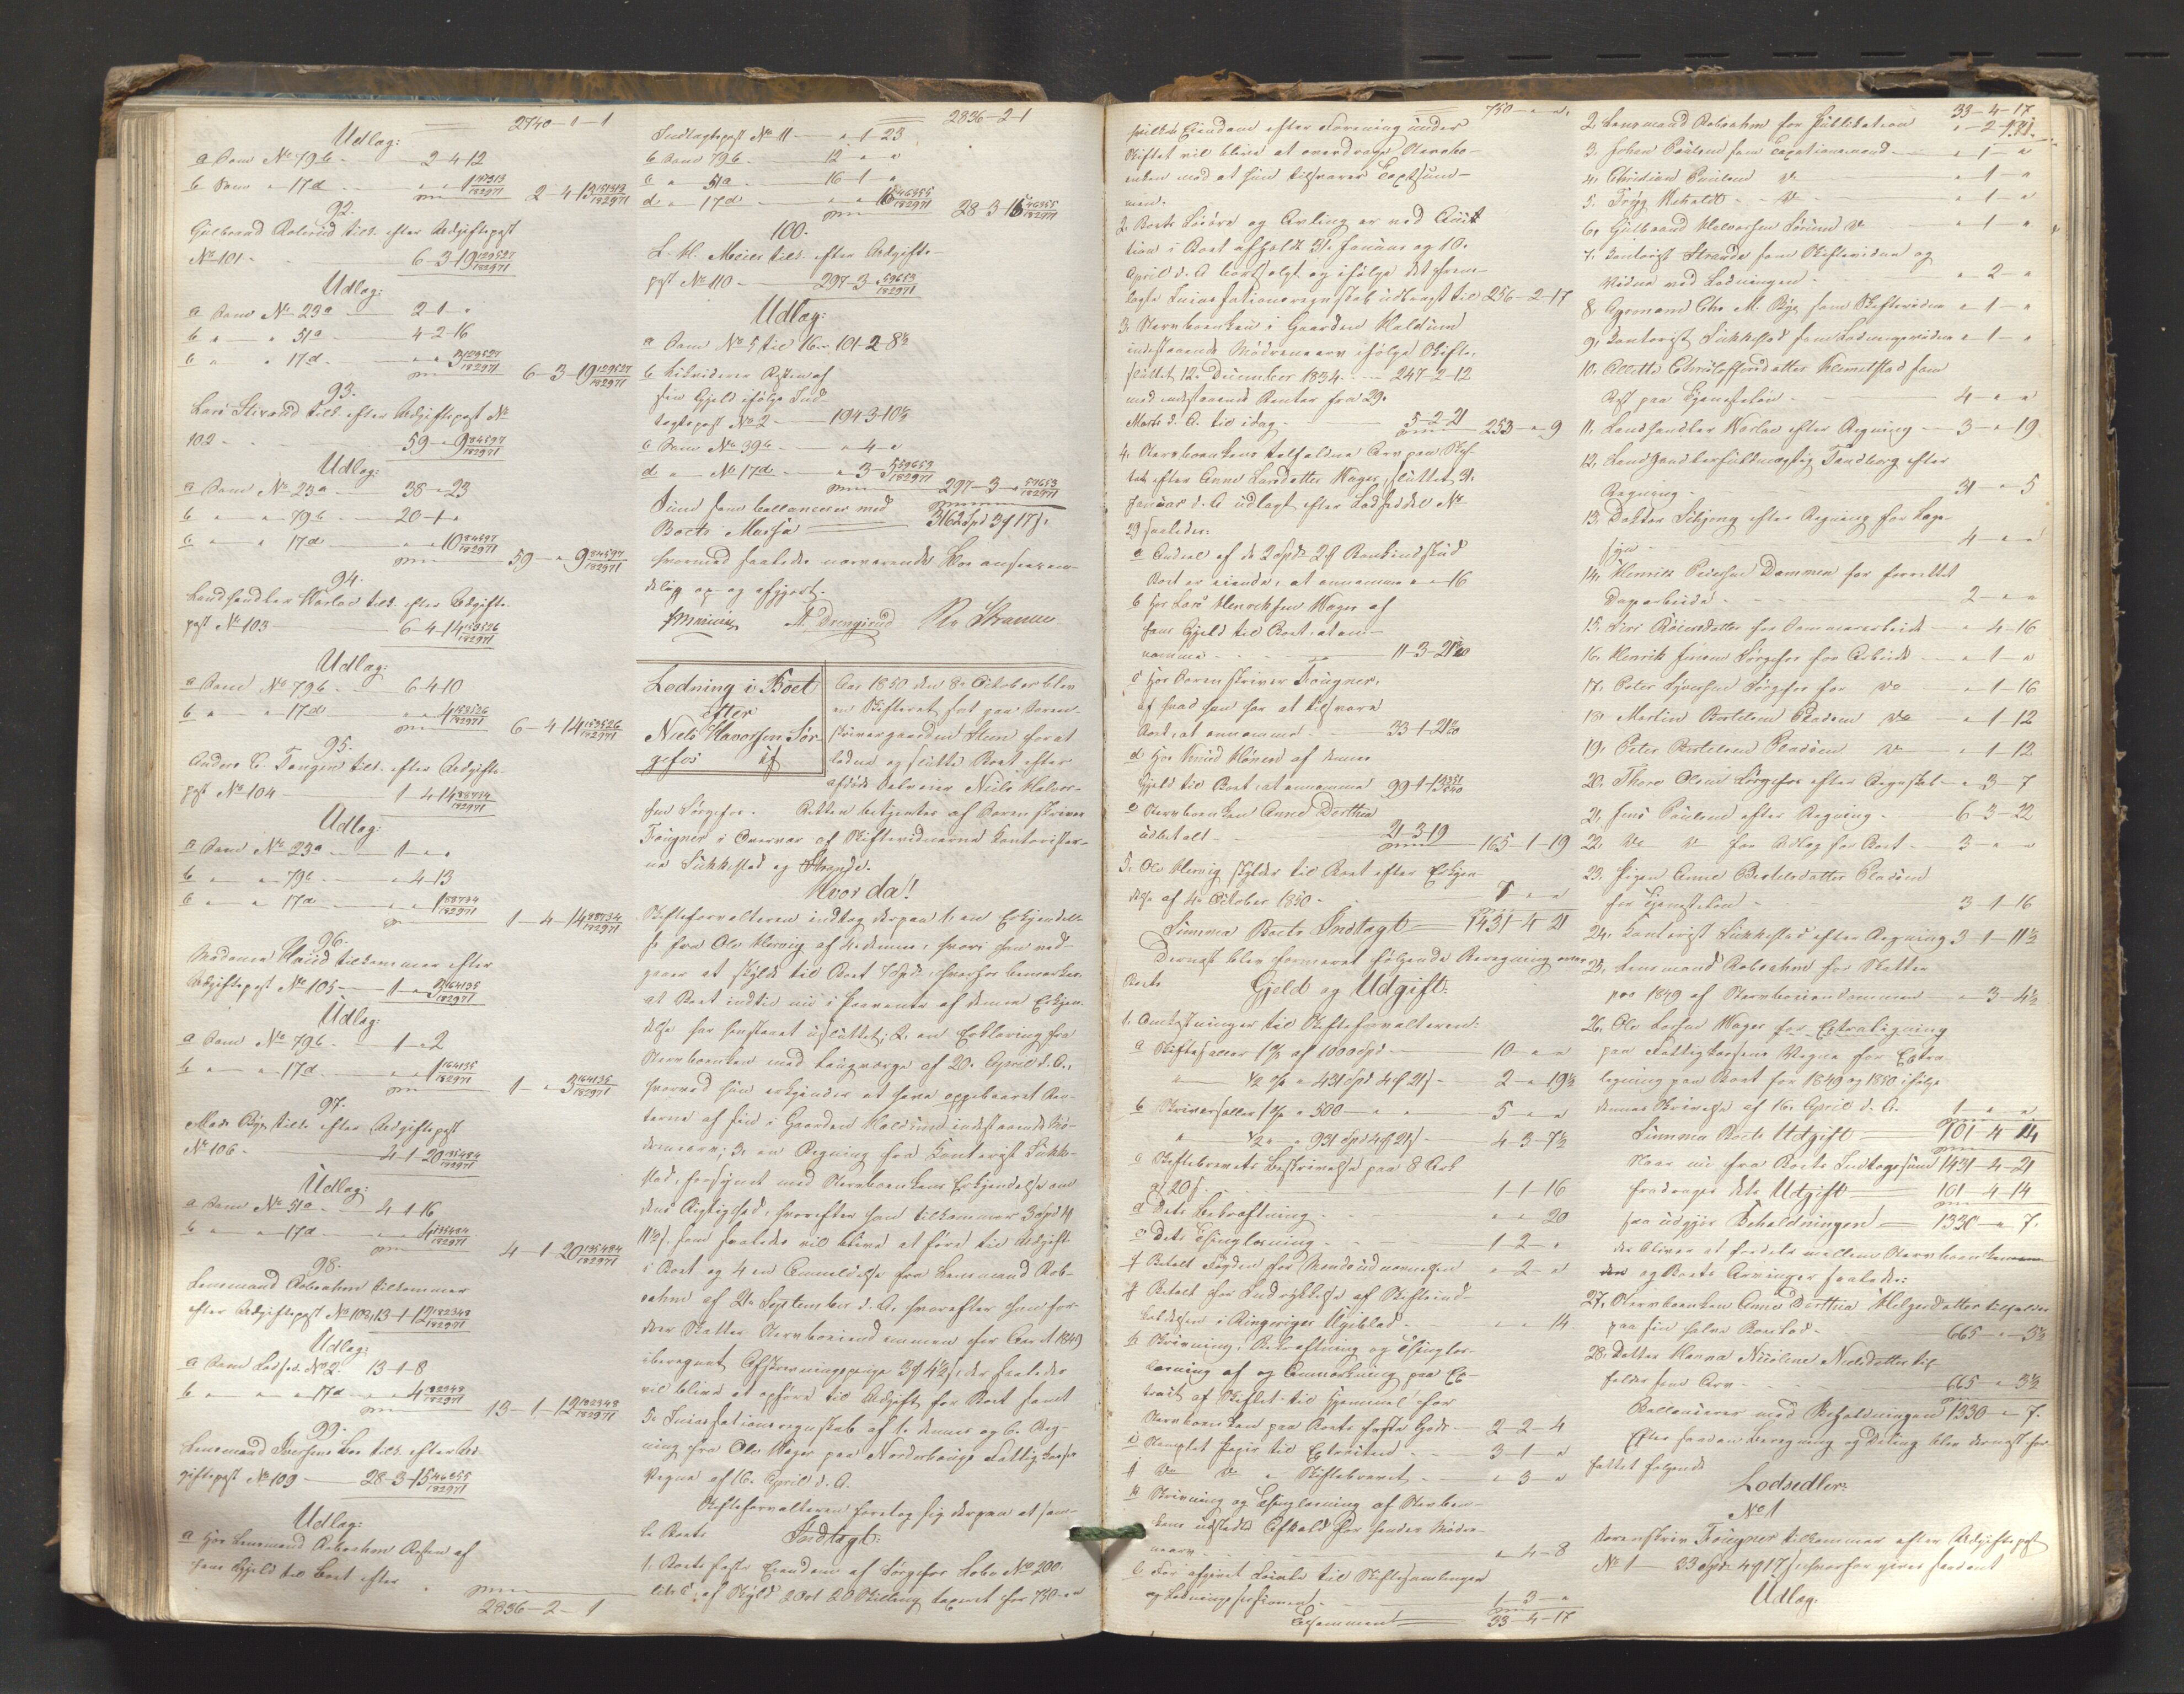 2740-1-1
Udlag:
a Sam No 79b. 2-4-12
b Sam " 17d. " " 1 157313/182971 2-4-13 157313/182971
92.
Gulbrand Rolerud tilk. efter Udgiftspost
No 101. 6-3-19 129527/182971
Udlag:
a Sam No 23a 2-1-"
b " " 51a 4-2-16
c " " 17d. " " 3 129527/182971 6-3-19 129527/182971
93.
Lars Strand tilk. efter Udgiftspost No
102 59-"-9 84597/182971
Udlag:
a Sam No 23a 38-"-23
b " " 79b 20-1-"
c " " 17d " " 10 84597/182971 59-"-9 84597/182971
94.
Landhandler Warloe tilk. efter Udgifts-
post No 103 6-4-14 153526/182971
Udlag:
a Sam No 79b 6-4-10
b " " 17d " " 4 153526/182971 6-4-14 153526/182971
95.
Anders E. Tangen tilk. efter Udgifts-
post No 104 1-4-14 88734/182971
Udlag:
a Sam No 23a 1-"-"
b " " 79b " 4-13
c " " 17d " " 1 88734/182971 1-4-14 88734/182971
96.
Madame Huid tilkommer efter
Udgiftspost No 105 1-"-3 164135/182971
Udlag:
a Sam No 79b 1-"-2
b " " 17d. " " 1 164135/182971 1-"-3 164135/182971
97.
Mads Bye tilk. efter Udgiftspost
No 106. 4-1-20 135484/182971
Udlag:
a Sam No 51a 4-1-16
b " " 17d " " 4 135484/182971 4-1-20 135484/182971
98.
Lensmand Robsahm tilkommer
efter Udgiftspost No 108, 13-1-12 182348/182971
Udlag:
a Sam Lodsed. No 2. 13-1-8
b " " 17d " " 4 182348/182971 13-1-12 182348/182971
99.
Lensmand tilk. efter Ud-
giftspost No 109 28-3-15 46355/182971
Udlag:
a Hos Lensmand Robsahm Resten af
hans Gjeld til Boet efter
2836-2-1
2836-2-1
Indtægtspost No 11 " 1-23
b Sam 79b 12-"-"
c " 51a 16-1-"
d " 17d " " 16 46355/182971 28-3-15 46355/182971
100.
L. H. Meier tilk. efter Udgifts-
post No 110 297-3-" 59653/182971
Udlag:
a Sam No 5 til 16 101-2-8½
b Likviderer Resten af
sin Gjeld ifølge Ind-
tægtspost No 2 194-3-10½
c Sam No 39b " 4-"
d " No 17d " 3-5 59653/182971 297-3-" 59653/182971
Sum som ballancerer med
Boets Massa 3162 Spd 3 ort 17 s.
hvormed saaledes nærværende Boe ansees en-
delig op- og afgjort.
Lodning i Boet
efter
Niels Havorsen Sør-
gefos
Aar 1850 den 8de October blev
en Skifteret sat paa Soren-
skrivergaarden Steen for at
lodne og slutte Boet efter
afdøde Selveier Niels Halvor-
sen Sørgefos. Retten betjentes af Sorenskriver
Fougner i Overvær af Skiftevidnerne Kontoristер-
ne Sukkestad og Strande.
Hvor da!!
Skifteforvalteren indtog derpaa 1, en Erkjendel-
se fra Ole Herwig af 4de dennes, hvori han ved-
gaaer at skylde til Boet 7 Spd., hvorfor bemærkes
at Boet indtil nu i Paavente af denne Erkjen-
delse har henstaaet usluttet; 2, en Erklæring fra
Stervboenken med Laugværge af 20. April d. A.,
hvorved hun erkjender at have oppebaaret Ren-
terne af sin i Gaarden Haldum indestaaende Mø-
drenearv; 3, en Regning fra Kontorist Sukke-
stad, forsynet med Stervboenkens Erkjendelse om
dens Rigtighed, hvorefter han tilkommer 3 Spd 1 ort
11½ s. som saaledes vil blive at føre til Udgift
i Boet og 4 en Anmeldelse fra Lensmand Rob-
sahm af 21de September d. A. hvorefter han for-
drer Skatter Stervboeiendommen for Aaret 1849
iberegnet Afskrivningspenge 3 ort 4½ s, der saaledes
vil blive at opføre til Udgift for Boet samt
5, Inkassationsregnskab af 1. dennes og 6. Reg-
ning fra Ole Wager paa Norderhougs Fattigkasses
Vegne af 16. April d. A.
Skifteforvalteren foretog sig derpaa at sam-
le Boets Indtægt:
1. Boets faste Eiendom af Sørgefos Løbe No 200.
litr. c, af Skyld 2 Ort 20 Skilling taxeret for 750-"-"
750-"-"
hvilken Eiendom efter Forening under
Skiftet vil blive at overdrage Stervbo-
enken mod at hun tilsvarer Taxtsum-
men.
2. Boets Løsøre og Avling er ved Auk-
tion i Boet afholdt 31. Januar og 10.
April d. A. bortsolgt og ifølge det frem-
lagte Inkassationsregnskab udbragt til 256-2-17
3. Stervboenken i Gaarden Haldum
indestaaende Mødrenearv ifølge Skifte,
sluttet 12. December 1834 247-2-12
med indestaaende Renter fra 29.
Marts d. A. til idag 5-2-21 253-"-9
4. Stervboenkens tilfaldne Arv paa Skif-
tet efter Anne Larsdatter Wager, sluttet 31.
Januar d. A. udlagt efter Lodseddel No
29 saaledes:
a Andeel af de 2 Spd 2 ort Bankindskud
Boet er eiende, at annamme " " 16
b Hos Lars Henochsen Wager af
hans Gjeld til Boet, at an-
namme 11-3-21
c Hos Sorenskriver Fougner,
af hvad han har at tilsvare
Boet, at annamme 33-1-21
d Hos Knud Hønen af dennes
Gjeld til Boet at annamme 99-1-13
e Stervboenken Anne Dorthea
udbetalt 21-3-19 165-1-19
5. Ole Herwig skylder til Boet efter Erkjen-
delse af 4de October 1850 7-"-"
Summa Boets Indtægt 1431-4-21
Dernæst blev formeret følgende Beregning over
Boets Gjeld og Udgift:
1. Omkostninger til Skifteforvalteren:
a Skiftesaller 1% af 1000 Spd 10-"-"
" ½% " 431 Spd 4 ort 21 s 2-"-19½
b Skriversaller 1% " 500 " " 5-"-"
" ½ " " 931 Spd 4 ort 21 s 4-3-7½
c Skiftebrevets Beskrivelse paa 8 Ark
a 20 s 1-1-16
d Dets Bekræftning " " 20
e Dets Thinglæsning 1-2-"
f Betalt Fogden for Mandsudnævnelsen " 2-"
g Betalt for Indrykkelse af Skifteind-
kaldelsen i Ringeriges Ugeblad " " 14
h Skrivning, Bekræftning og Thinglæs-
læsning af og Anmærkning paa Ex-
trakt af Skiftet til Hjemmel for
Stervboenken paa Boets faste Gods 2-2-4
i Stemplet Papir til Extrakten 3-1-"
j do do " Skiftebrevet " 3-"
k Skrivning og Thinglæsning af Stervboen-
kens udstedte Afkald for hendes Mødre-
nearv " 4-8
l For afgivet Locale til Skiftesamlingen
og Lodningsforsamml. 1-3-"
Tilsammen 33-4-17
33-4-17
2. Lensmand Robsahm for Publikation " 2-"
3. Johan Poulsen som Taxationsmand " 1-"
4. Christian Poulsen do " 1-"
5. Tryg Mehaldt do " 1-"
6. Gulbrand Halvorsen Sørum do " 1-"
7. Kontorist Strande som Skiftevidne og
Vidne ved Lodningen " 2-"
8. Agromand Chr. M. Bye som Skiftevidne " 1-"
9. Kontorist Sukkestad som Lodningsvidne " 1-"
10. Alette Christoffersdatter Klemetstad som
Rest paa Tjenesteløn 4-"-"
11. Landhandler Warloe efter Regning 3-"-19
12. Landhandlerfuldmægtig Tandberg efter
Regning 31-"-5
13. Doktor Schiong efter Regning for Læge-
syn 4-"-"
14. Henrik Pedersen Dammen for forrettet
Dagarbeide 2-"-"
15. Siri Olinedatter for Sommerarbeide " 4-16
16. Henrik Jensen Sørgefos for Arbeide " 1-"
17. Peter Syversen Sørgefos for do " 1-16
18. Martin Bertelsen Pladsen do " 1-12
19. Peter Bertelsen Pladsen do " 1-12
20. Thore Olsen Sørgefos efter Regnskab " 3-7
21. Jens Poulsen efter Regning 6-3-22
22. do do for Udlæg for Boet 3-"-"
23. Pigen Anne Bertelsdatter Pladsen
for Tjenesteløn 3-1-16
24. Kontorist Sukkestad efter Regning 3-1-11½
25. Lensmand Robsahm for Skatter
pro 1849 af Stervboeiendommen " 3-4½
26. Ole Larsen Wager for Extraligning
paa Fattigkassens Vegne for Extra-
ligning paa Boet for 1849 og 1850 ifølge
dennes Skrivelse af 16. April d. A. 1-"-"
Summa Boets Udgift 101-4-14
Naar nu fra Boets Indtægtssum 1431-4-21
fradrages dets Udgift 101-4-14
saa udgjør Beholdningen 1330-"-7.
der bliver at fordele mellem Stervboenken
og Boets Arvinger saaledes:
27. Stervboenken Anne Dorthea Helgesdatter tilfalder
paa sin halve Boeslod 665-"-3½
28. Datter Karen Nicoline Nielsdatter til-
falder som Arv 665-"-3½
Ballancerer med Beholdningen 1330-"-7.
Efter saadan Beregning og Deling blev dernæst for-
fattet følgende
Lodsedler:
No 1
Sorenskriv. Fougner tilkommer efter Udgiftspost
No 1 33 Spd 4 ort 17 s, hvorfor gives saadant
Udlæg: